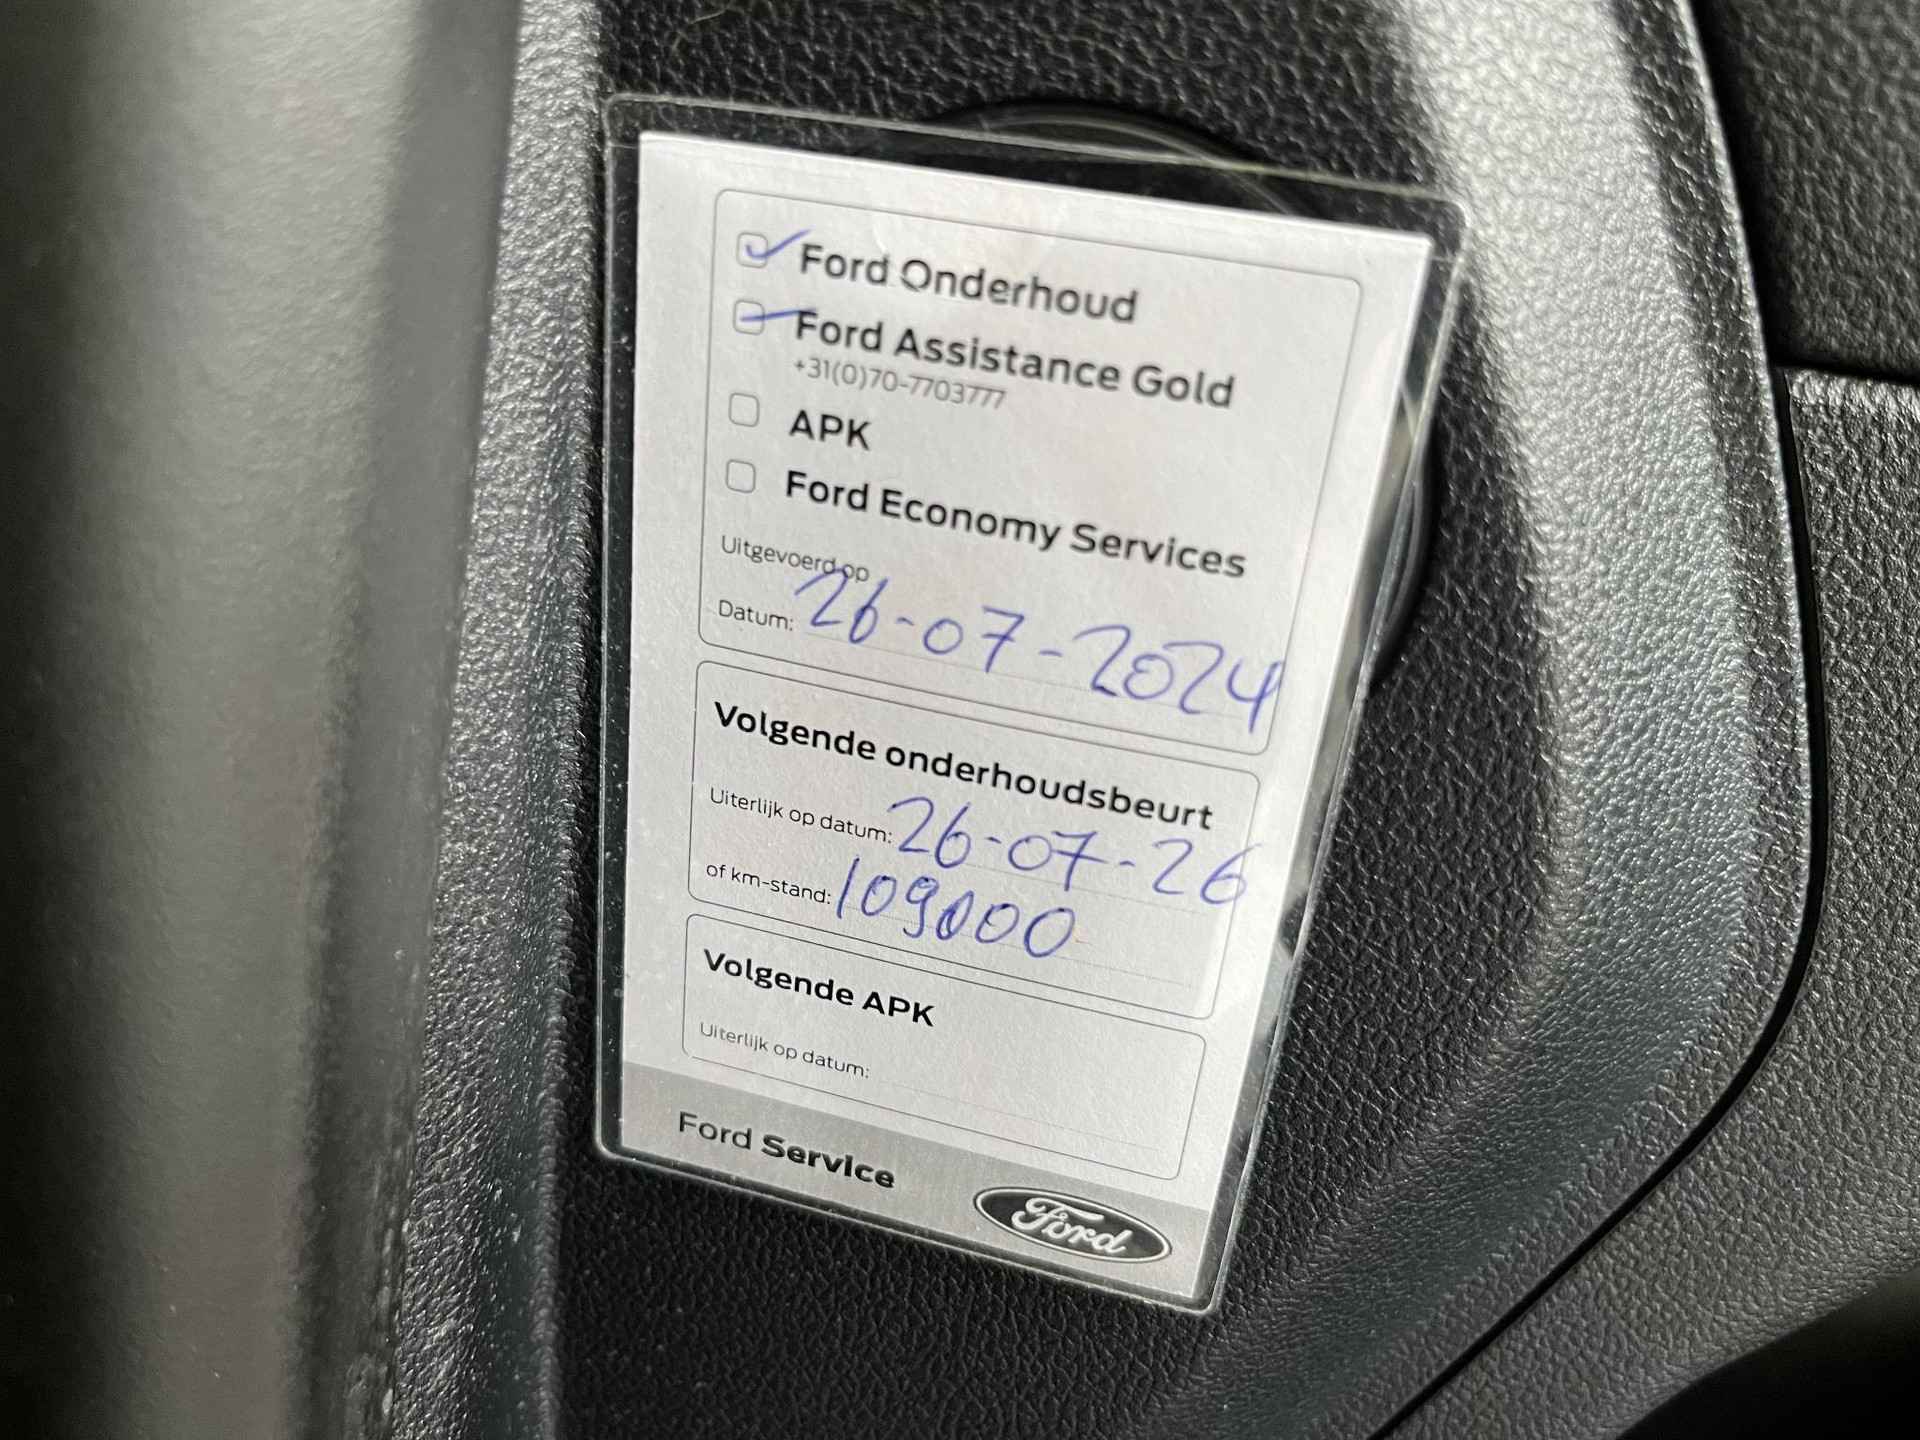 Ford Onderhoud
Ford Assistance Gold
+31(0)70-7703777
APK
Ford Economy Services
Uitgevoerd op
Datum: 26-07-2024
Volgende onderhoudsbeurt
Uiterlijk op datum: 26-07-26
of km-stand: 109000
Volgende APK
Uiterlijk op datum:
Ford Service
Ford